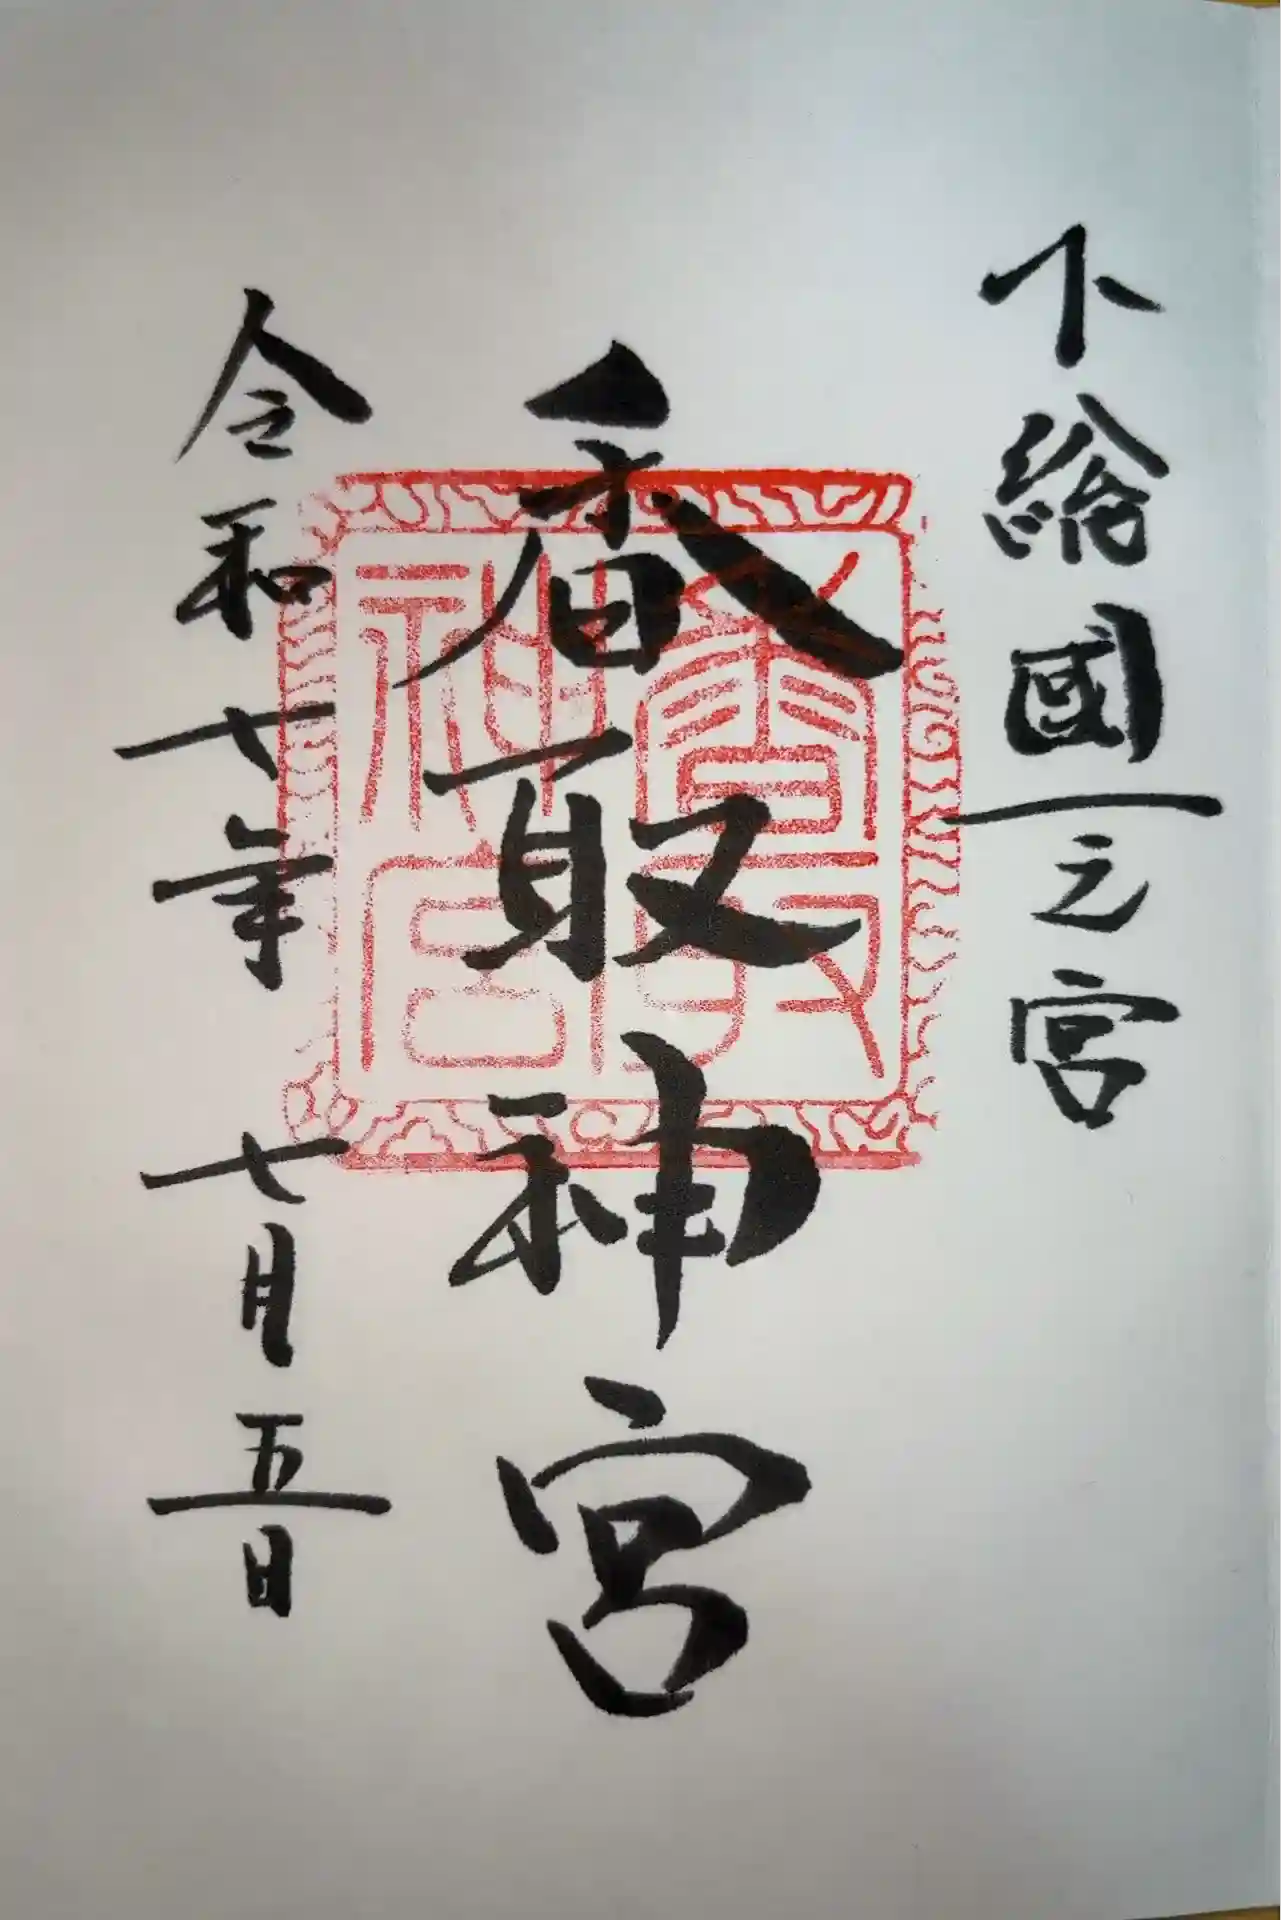 下総國一之宮
香取神宮
令和七年 七月五日
香取神宮